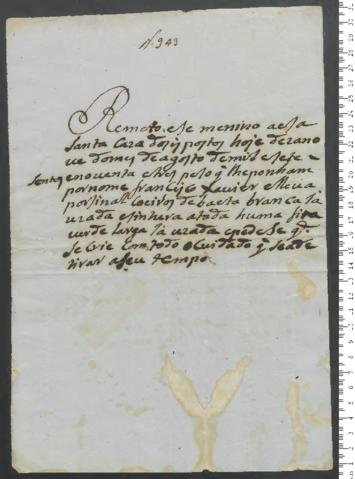 N. 943
Remeto ese menino a essa
Santa Caza dos ex postos hoje dezano
ue do mes de agosto de mil e sete
sentos e noventa e hes peso q lhe ponham
por nome francisco Xauier e leua
por sinal Coeiros de baeta branca la
urada e sinheiro atada huma fita
uerde larga la urada e pede se q
se Crie Com todo o Cuidado q se ade
tirar a seu tempo